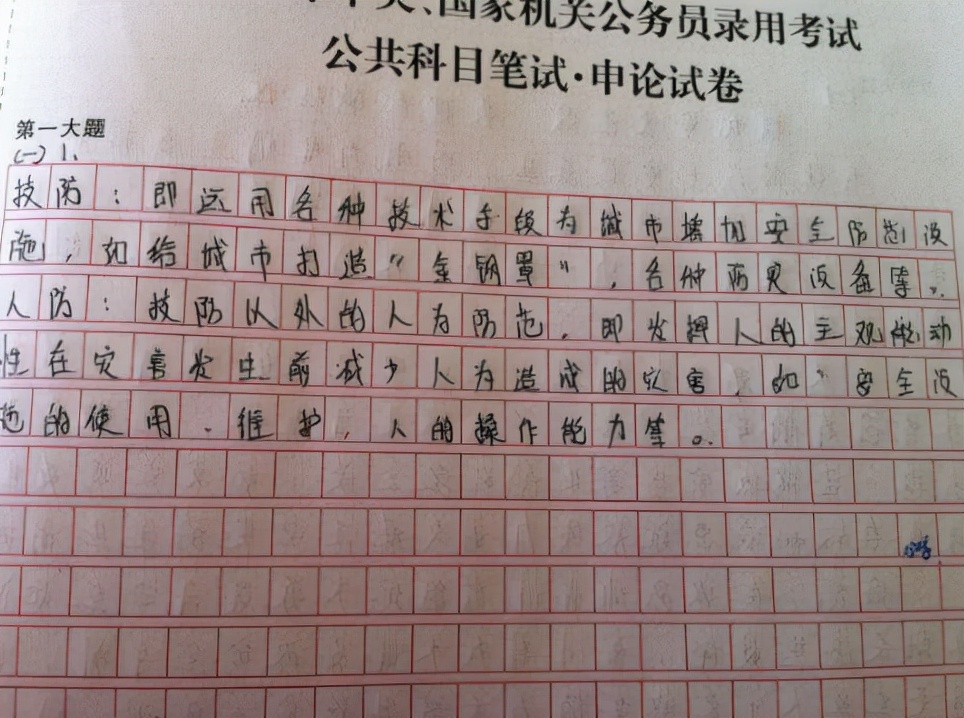 中央、国家机关公务员录用考试
公共科目笔试·申论试卷
第一大题
(一)1、
技防：即运用各种技术手段为城市增加安全防范设
施，如给城市打造"金钢罩"，各种防灾设备等。
人防：技防以外的人为防范，即发挥人的主观能动
性在灾害发生前减少人为造成的灾害，如"安全设
施的使用、维护，人的操作能力等。